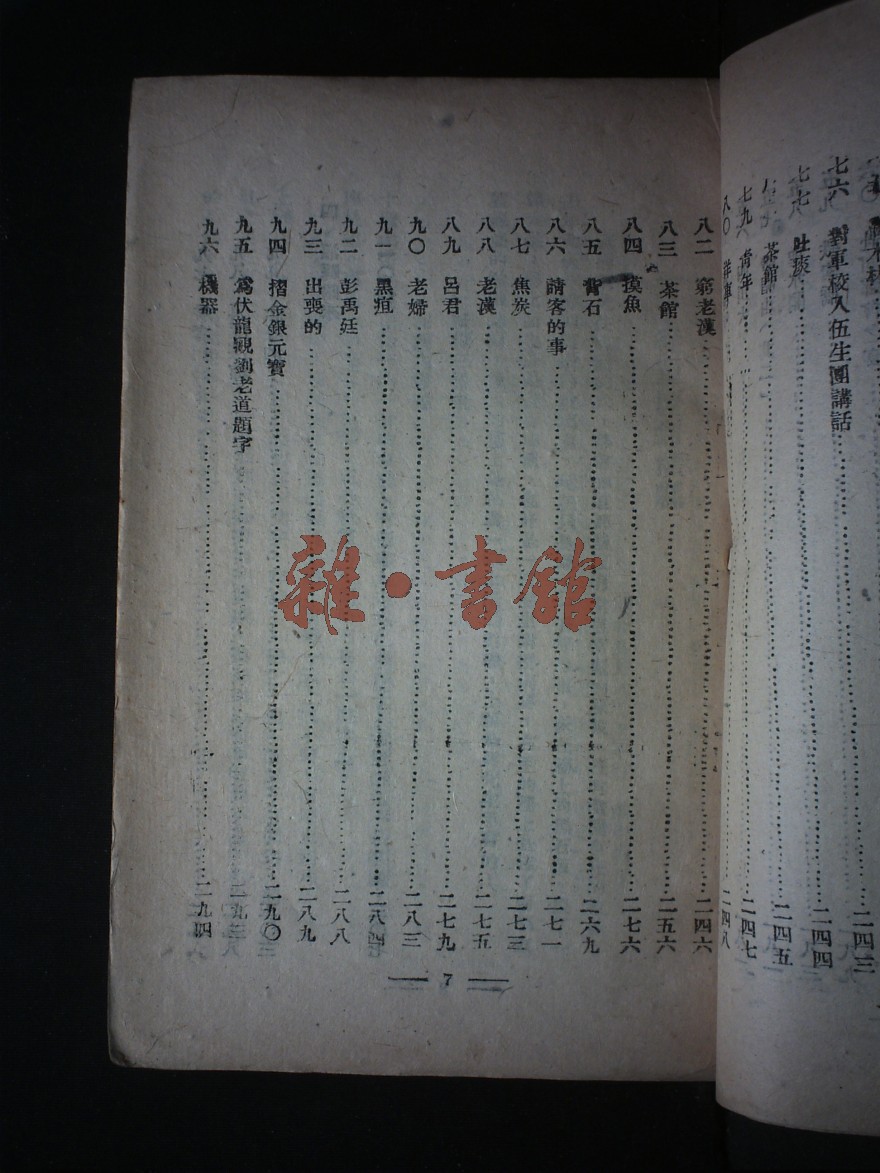 二四三
七六 對軍校入伍生團講話 二四四
七七 吐痰 二四五
茶館 二四七
七九 青年 二四八
八〇
八二 窮老漢 二四六
八三 茶館 二五六
八四 摸魚 二七六
八五 背石 二六九
八六 請客的事 二七一
八七 焦炭 二七三
八八 老漢 二七五
八九 呂君 二七九
九〇 老婦 二八三
九一 黑疸 二八四
九二 彭禹廷 二八八
九三 出喪的 二八九
九四 摺金銀元寶 二九〇
九五 爲伏龍觀劉老道題字 二九三
九六 機器 二九四
7
雜·書館